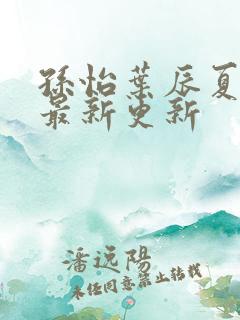 孫怡葉辰夏
最新更新
潘远陽
未任同意禁止转载